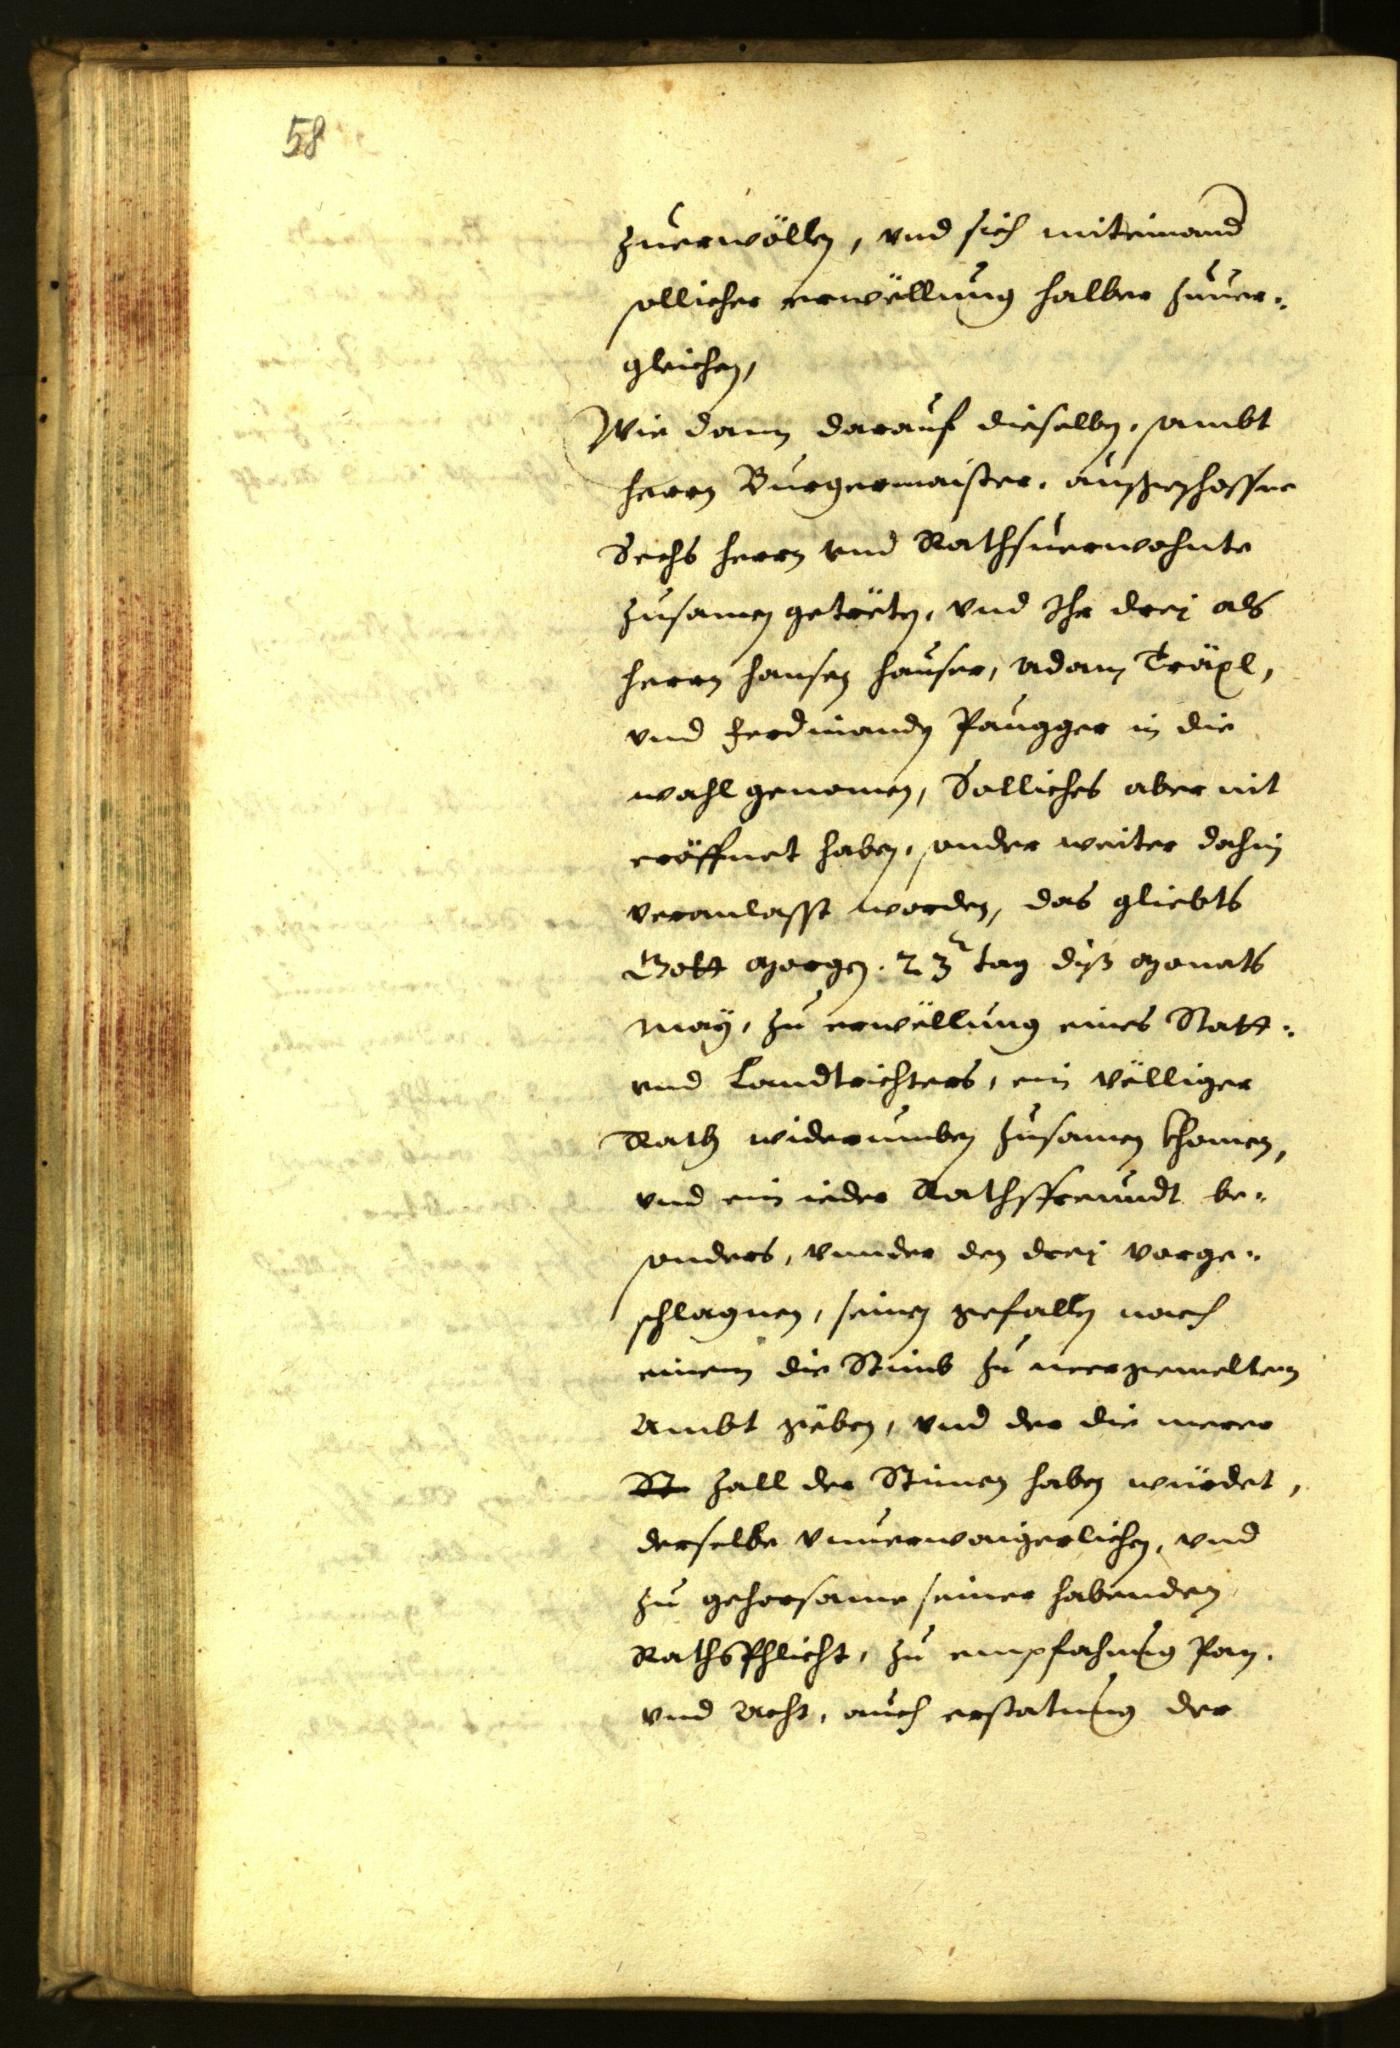 58
zuerwöllen, vnd sich miteinand
sollicher erwöllung halber zuuer¬
gleichen,
Wie dann darauf dieselben, sambt
herrn Burgermaister, außgeschossne
Sechs herrn vnd Rathsuerwohnte
zusamen getreten, vnd Ihr drej als
herrn Hansen Hauser, Adam Träxl,
vnd Ferdinanden Paugger in die
wahl genomen, Solliches aber nit
eröffnet haben, sonder weiter dahin
veranlasst worden, das geliebts
Gott Morgen. 23 tag diß Monats
May, zu erwöllung eines Statt¬
vnd Landtrichters, ein völliger
Rath widerumben zusamen khomen,
vnd ein ieder Rathsfreundt be¬
sonders, vnnder den drej vorge¬
schlagnen, seinen gefallen nach
einem die Stimb zu meergemeltem
Ambt geben, vnd der die merer
St zall der Stimen haben würdet,
derselbe vnuerwaigerlichen, vnd
zu gehorsame seiner habenden
RathsPhlicht, zu empfahung Pan,
vnd Acht, auch erstatung der